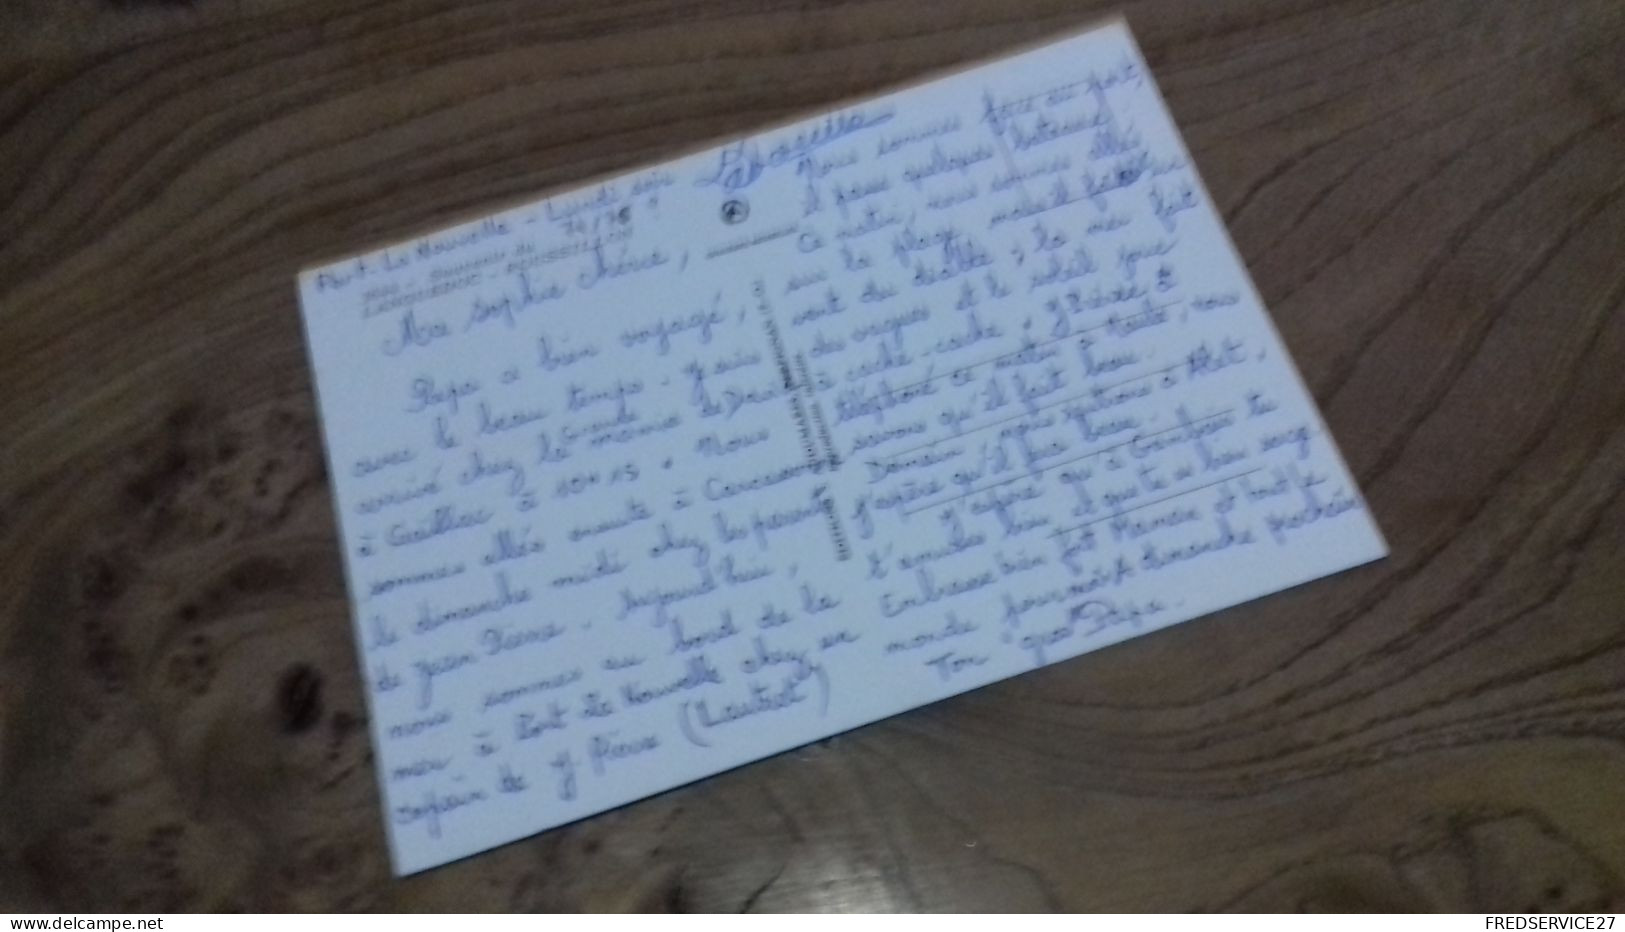 Port-La Nouvelle - Lundi soir
Souvenir du
LANGUEDOC - ROUSSILLON
Ma Sophie chérie,
Papa a bien voyagé,
avec le beau temps. J'
arrivé chez la mamie de
Grande
à Gaillac à 10h15. Nous
sommes allés ensuite à
le dimanche midi chez les parents
de Jean Pierre. Aujourd'hui,
nous sommes au bord de la
mer à Port La Nouvelle chez un
copain de J. Pierre (Lautrel)
Nous sommes face au port,
il passe quelques bateaux.
Ce matin, nous sommes allés
sur la plage mais il fait un
vent du diable, la mer fait
des vagues et le soleil joue
à cache-cache.
téléphoné ce matin à nous
savons qu'il fait beau.
Demain nous partirons à Alet,
j'espère qu'il fera beau.
J'espère qu'à tu
t'amuses bien et que tu es bien sage.
Embrasse bien fort Maman et tout le
monde dimanche prochain
Ton Papa.
FREDSERVICE27
www.delcampe.net